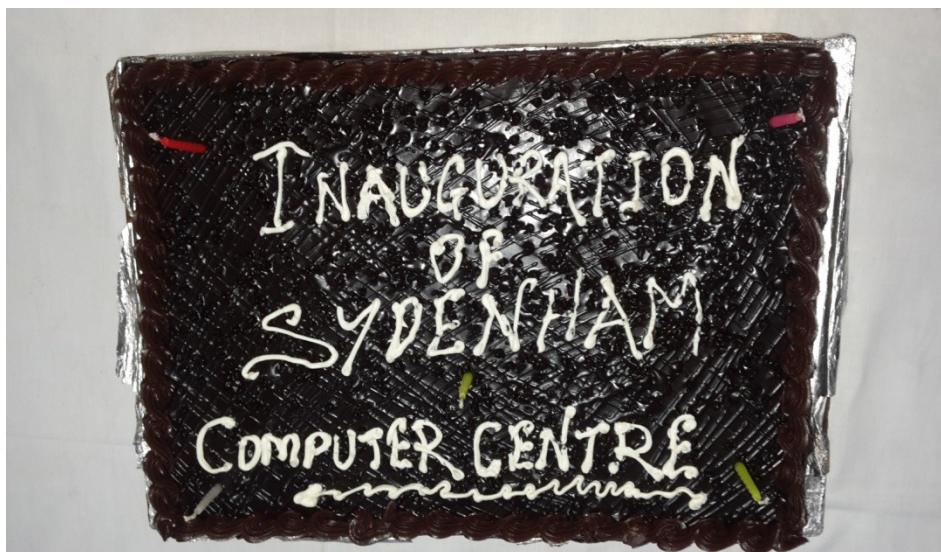 INAUGURATION
OF
SYDENHAM
COMPUTER CENTRE